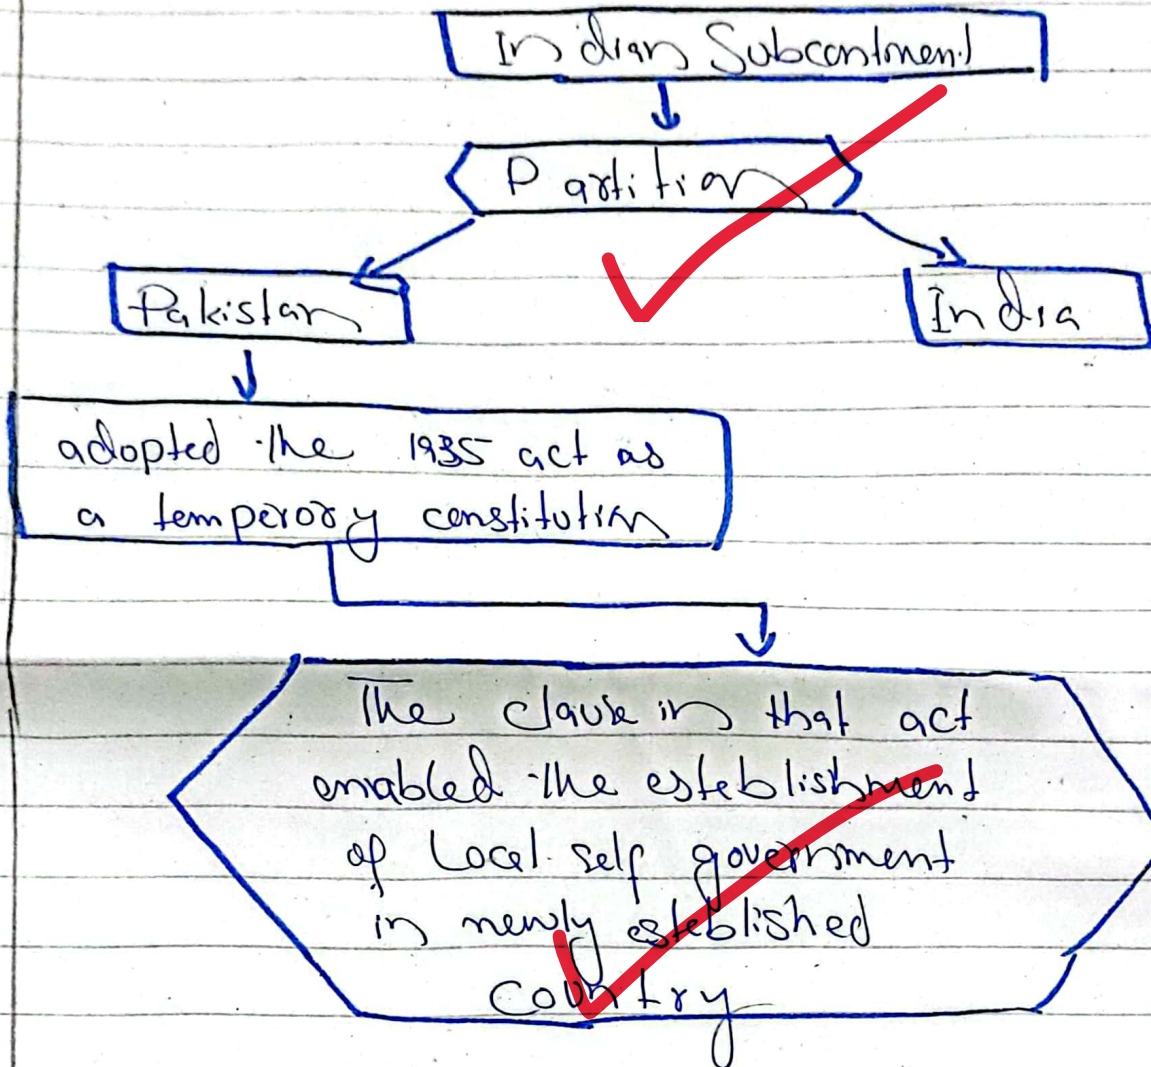 Indian Subcontinent
Partition
Pakistan
India
adopted the 1935 act as
a temperory constitution
The clause in that act
enabled the esteblishment
of Local self government
in newly esteblished
country